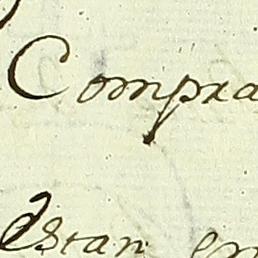 Compra
Estan en